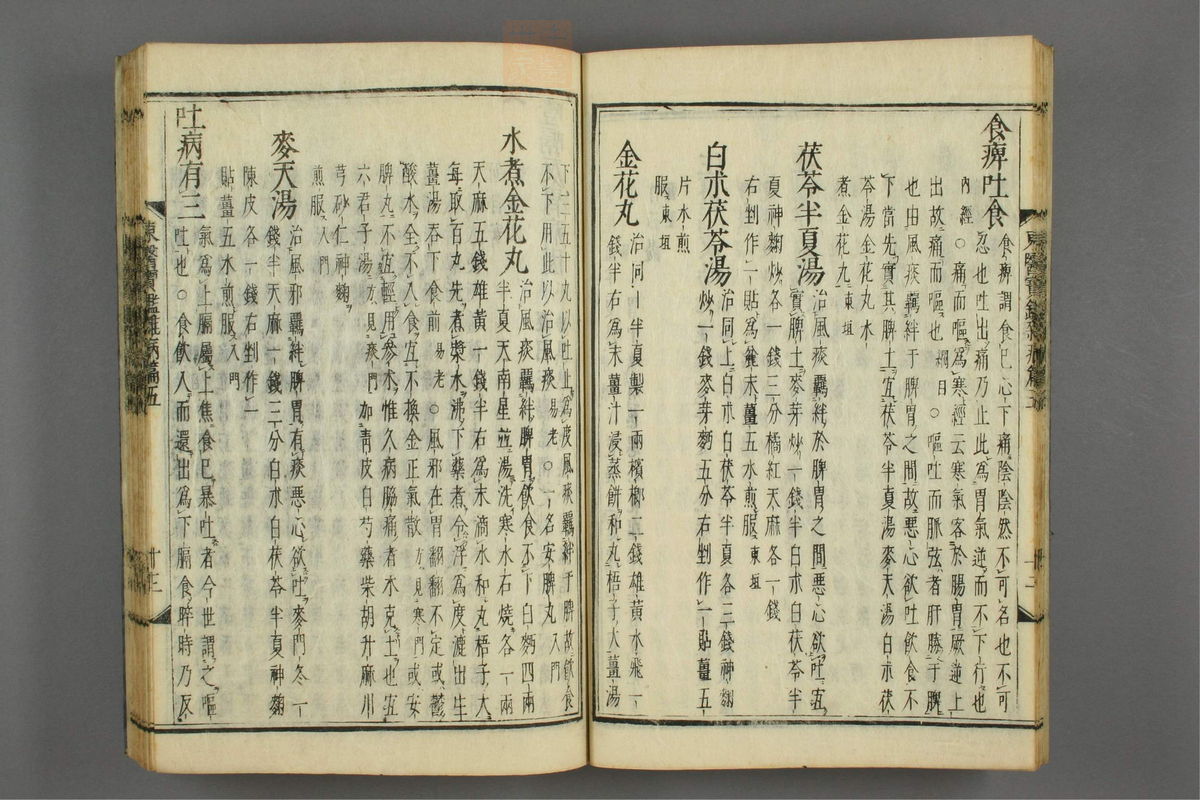 食痺吐食
食痺謂食已心下痛陰陰然不可名也不可
忍也吐出痛乃止此為胃氣逆而不下行也
內經○痛而嘔為寒經云寒氣客於腸胃厥逆上
出故痛而嘔也綱目○嘔吐而脈弦者肝勝于脾
也由風痰羈絆于脾胃之間故惡心欲吐飲食不
下當先實其脾土宜茯苓半夏湯麥天湯白朮茯
苓湯金花丸水
煮金花丸東垣
茯苓半夏湯
治風痰羈絆於脾胃之間惡心欲吐宜
實脾土麥芽炒一錢半白朮白茯苓半
夏神麴炒各一錢三分橘紅天麻各一錢
右剉作一貼為麄末薑五水煎服東垣
白朮茯苓湯
治同上白朮白茯苓半夏各三錢神麴
炒一錢麥芽麪五分右剉作一貼薑五
片水煎
服東垣
金花丸
治同上半夏製一兩檳榔二錢雄黃水飛一
錢半右為末薑汁浸蒸餠和丸梧子大薑湯
下三五十丸以吐止為度風痰羈絆于脾故飲食
不下用此以治風痰易老○一名安脾丸入門
水煮金花丸
治風痰羈絆脾胃飲食不下白麪四兩
半夏天南星並湯洗寒水石燒各一兩
天麻五錢雄黃一錢半右為末滴水和丸梧子大
每取百丸先煮漿水沸下藥煮令浮為度漉出生
薑湯吞下食前易老○風邪在胃翻翻不定或鬱
酸水全不入食宜不換金正氣散方見寒門或安
脾丸不宜輕用參朮惟久病脇痛者木克土也宜
六君子湯方見痰門加靑皮白芍藥柴胡升麻川
芎砂仁神麴
煎服入門
麥天湯
治風邪羈絆脾胃有痰惡心欲吐麥門冬一
錢半天麻一錢三分白朮白茯苓半夏神麴
陳皮各一錢右剉作一
貼薑五水煎服入門
吐病有三
氣為上膈屬上焦食已暴吐者今世謂之嘔
吐也○食飲入而還出為下膈食晬時乃反
東醫寶鑑雜病篇五
十三